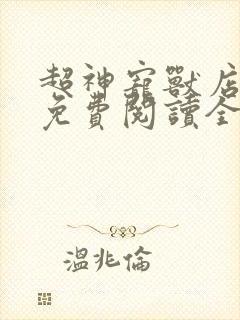 超神寵獸店
免費閱讀全
溫兆倫